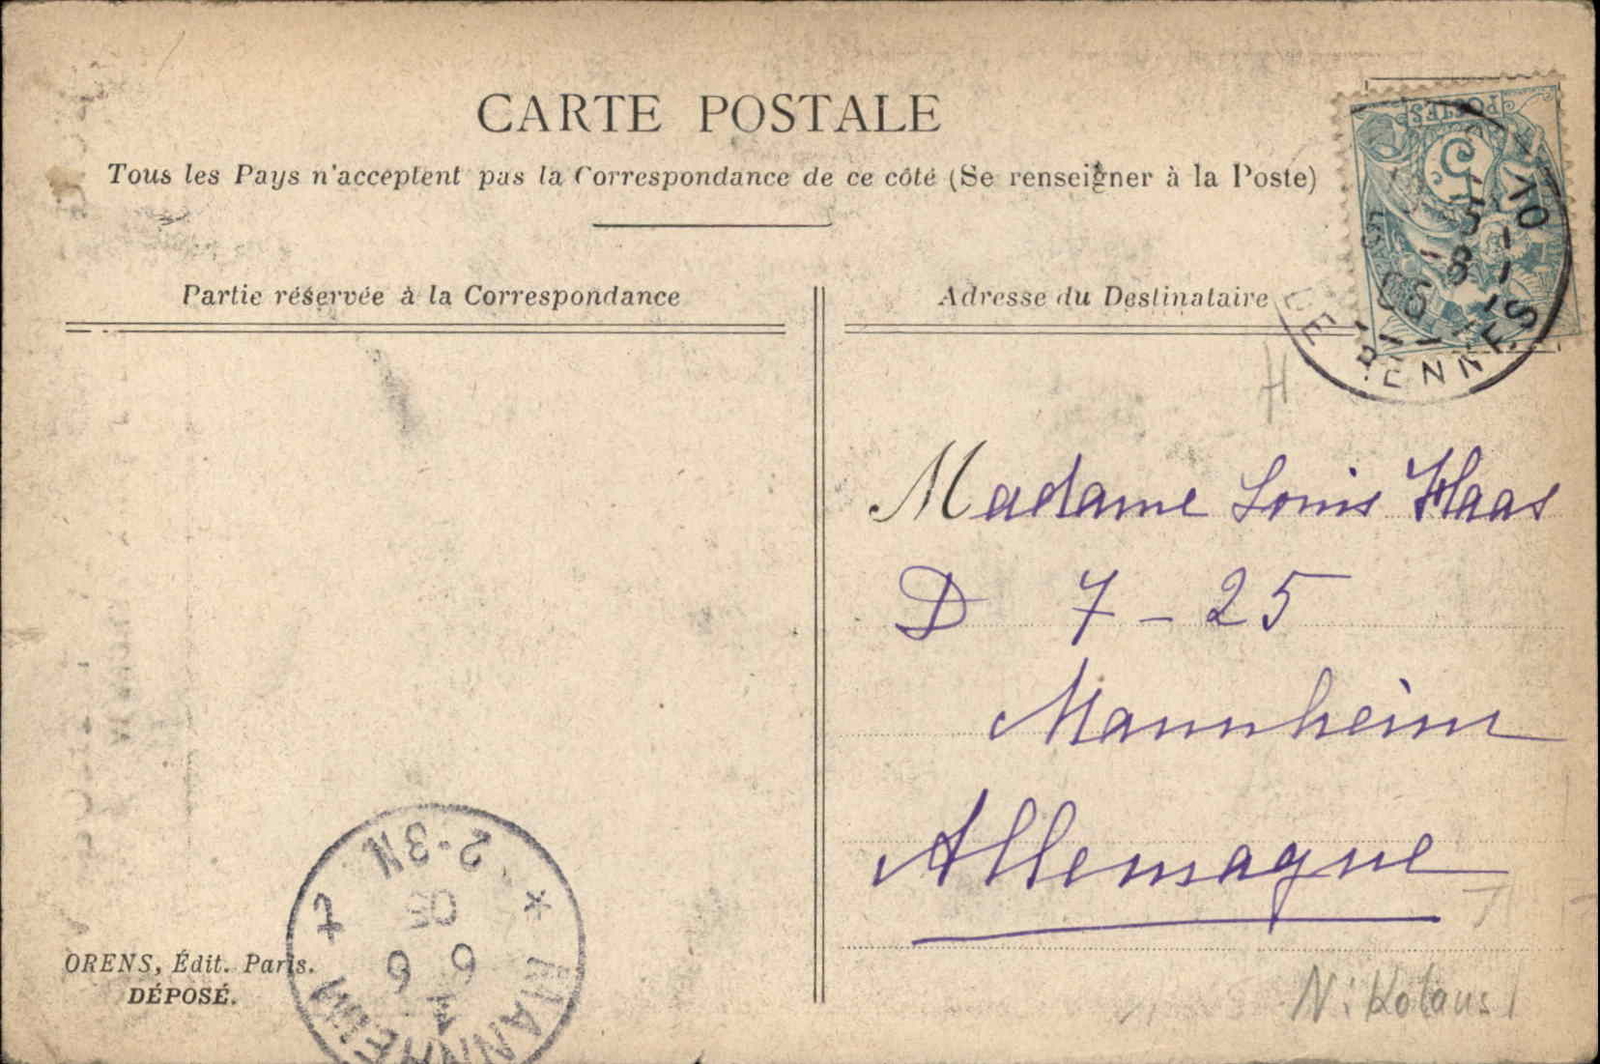 CARTE POSTALE
Tous les Pays n'acceptent pas la Correspondance de ce côté (Se renseigner à la Poste)
Partie réservée à la Correspondance
Adresse du Destinataire
POSTES
5
DE RENNES
H
Madame Louis Haas
D 7 - 25
Mannheim
Allemagne
ORENS, Édit. Paris.
DÉPOSÉ.
MANNHEIM
6 6
05
2-3N
Nikolaus